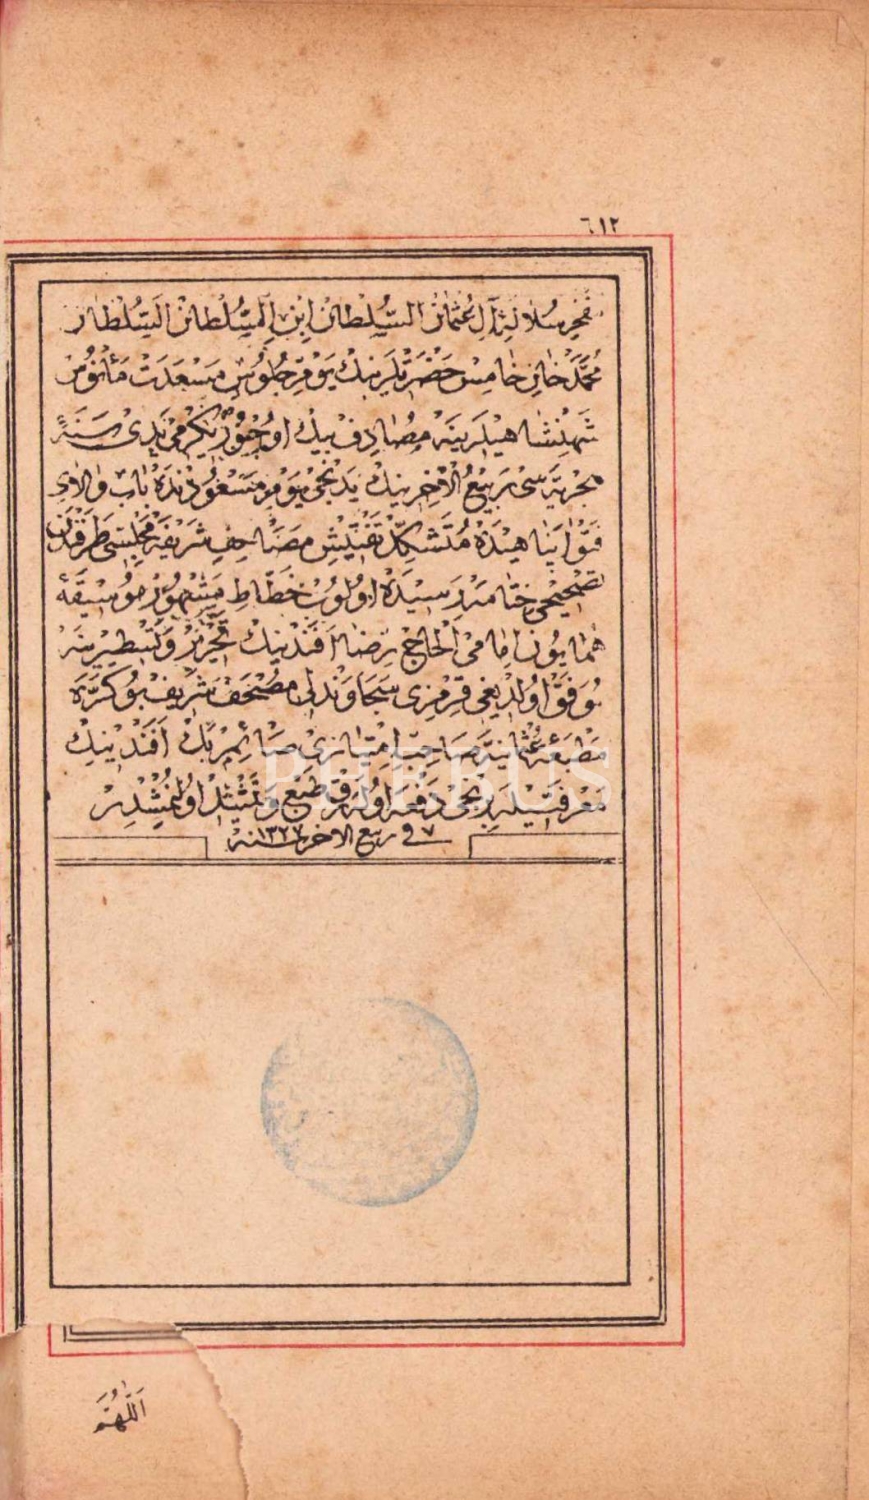 ٦١٢
فخر سلالۀ آل عثمان السلطان ابن السلطان السلطان
محمد خان خامس حضرتلرينك يوم جلوس مسعدت مأنوس
شهنشاهيلرينه مصادف بيك اوچيوز يكرمى يدى سنۀ
هجريه سى ربيع الآخرينك يدنجى يوم مسعودنده باب والاى
فتواپناهيده متشكل تفتيش مصاحف شريفه مجلسى طرفندن
تصحيحى ختامه رسيده اولوب خطاط مشهور موسيقۀ
همايون امامى الحاج رضا افندينك تحرير و تسطيرينه
موفق اولديغى قرمزى سجاوندلى مصحف شريف بو كره
مطبعۀ عثمانيه صاحب امتيازى صائم بك افندينك
معرفتيله برنجى دفعه اوله رق طبع و تمثيل اولنمشدر
فى ٧ ربيع الاخر سنه ١٣٢٧
PHEBUS
اللهم